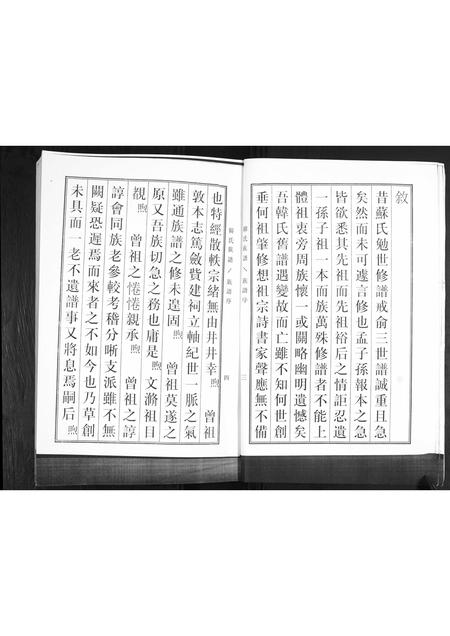 敘
昔蘇氏勉世修譜戒俞三世譜誠重且急
矣然而未可遽言修也孟子孫報本之急
皆欲悉其先祖而先祖裕後之情詎忍遺
一孫子祖一本而族萬殊修譜者不能上
體祖衷旁周族懷一或闕略幽明遺憾矣
吾韓氏舊譜遇變故而亡雖不知何世創
垂何祖肇修想祖宗詩書家聲應無不備
韓氏族譜／族譜序
三
韓氏族譜／族譜序
四
也特經散佚宗緒無由井井幸煦曾祖
敦本志篤斂貲建祠立軸紀世一脈之氣
雖通族譜之修未遑固煦曾祖莫遂之
原又吾族切急之務也庸是煦文滌祖目
覩煦曾祖之惓惓親承曾祖之諄
諄會同族老參較考稽分晰支派雖不無
闕疑恐遲焉而來者之不如今也乃草創
未具而一老不遺譜事又將息焉嗣后煦